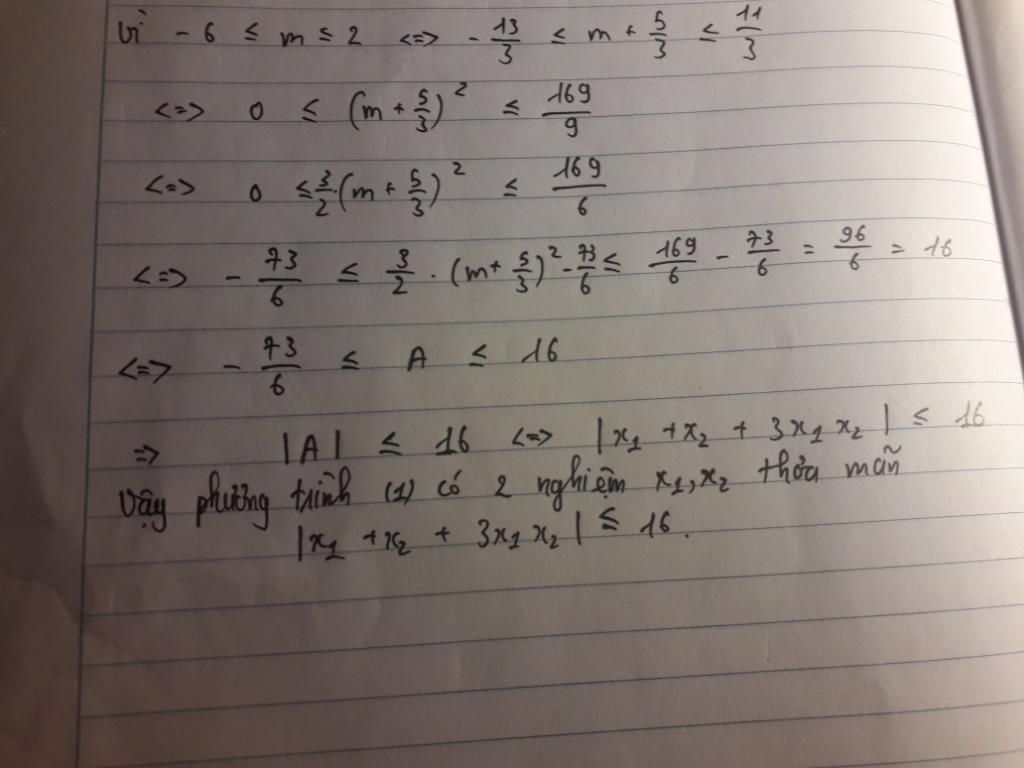 Vì - 6 ≤ m ≤ 2 <=> - 13/3 ≤ m + 5/3 ≤ 11/3
<=> 0 ≤ (m + 5/3)² ≤ 169/9
<=> 0 ≤ 3/2 (m + 5/3)² ≤ 169/6
<=> - 73/6 ≤ 3/2 . (m + 5/3)² - 73/6 ≤ 169/6 - 73/6 = 96/6 = 16
<=> - 73/6 ≤ A ≤ 16
=> |A| ≤ 16 <=> |x₁ + x₂ + 3x₁x₂| ≤ 16
Vậy phương trình (1) có 2 nghiệm x₁, x₂ thỏa mãn
|x₁ + x₂ + 3x₁x₂| ≤ 16.